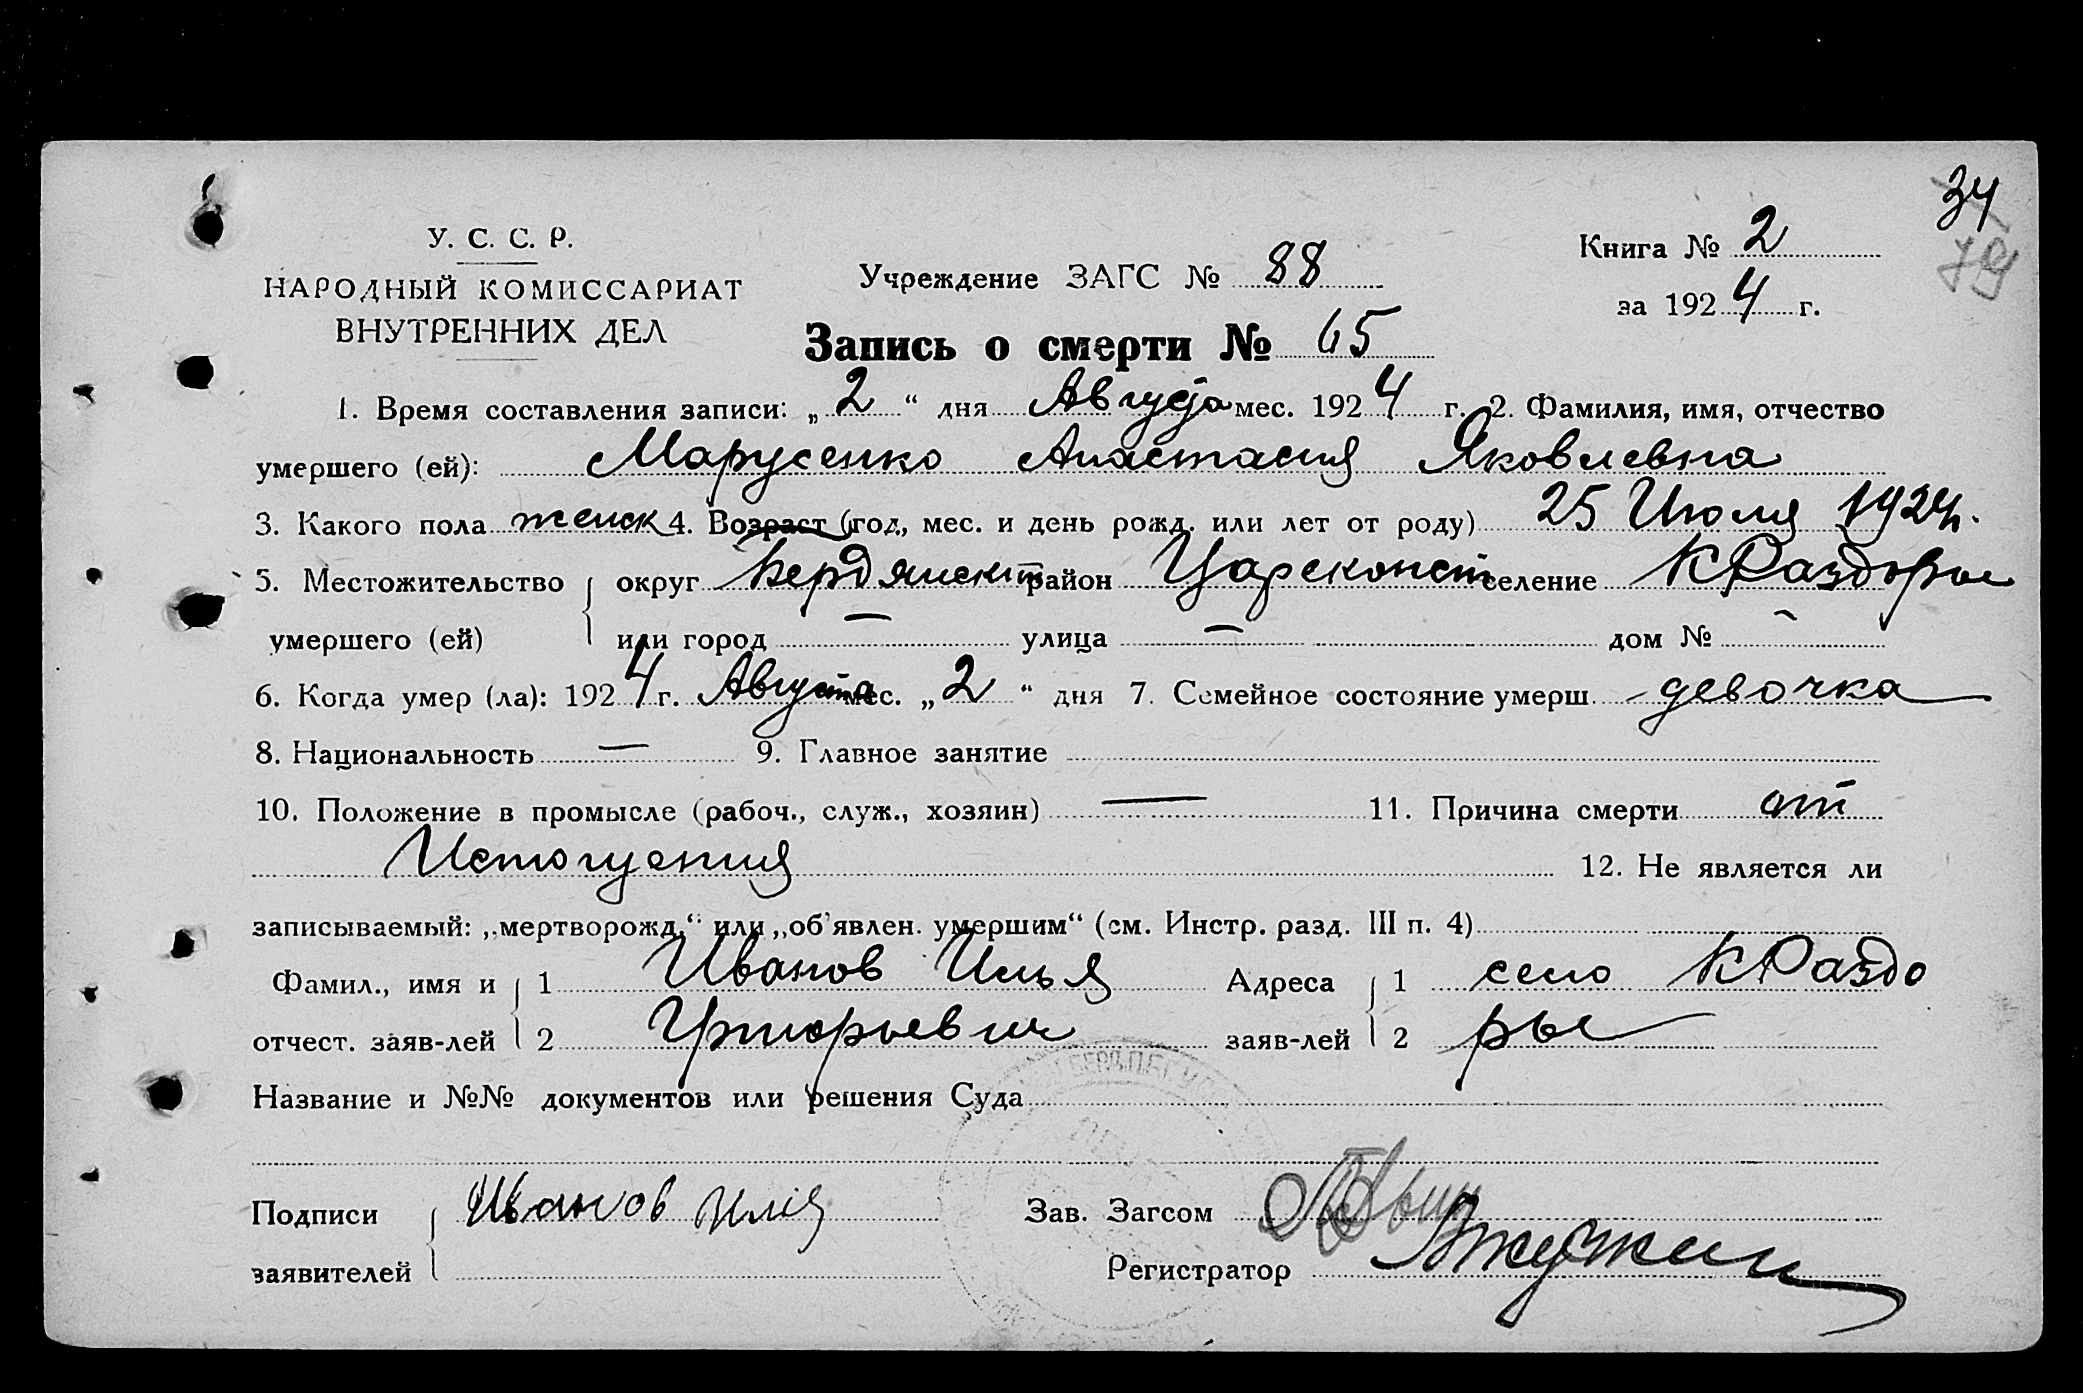 34
79
У. С. С. Р.
НАРОДНЫЙ КОМИССАРИАТ
ВНУТРЕННИХ ДЕЛ
Учреждение ЗАГС № 88
Книга № 2
за 1924 г.
Запись о смерти № 65
1. Время составления записи: „2“ дня Августа мес. 1924 г. 2. Фамилия, имя, отчество
умершего (ей): Марусенко Анастасия Яковлевна
3. Какого пола женск 4. Возраст (год, мес. и день рожд. или лет от роду) 25 Июля 1924г.
5. Местожительство округ Бердянский район Царсконст селение К Раздоры
умершего (ей) или город — улица — дом № -
6. Когда умер (ла): 1924 г. Августа мес. „2“ дня 7. Семейное состояние умерш. - девочка
8. Национальность — 9. Главное занятие
10. Положение в промысле (рабоч., служ., хозяин) — 11. Причина смерти от
Истощения 12. Не является ли
записываемый: „мертворожд.“ или „об'явлен. умершим“ (см. Инстр. разд. III п. 4)
Фамил., имя и 1 Иванов Илья Адреса 1 село К Раздо
отчест. заяв-лей 2 Григорьевич заяв-лей 2 ры
Название и №№ документов или решения Суда
Подписи Иванов Илия Зав. Загсом
заявителей Регистратор